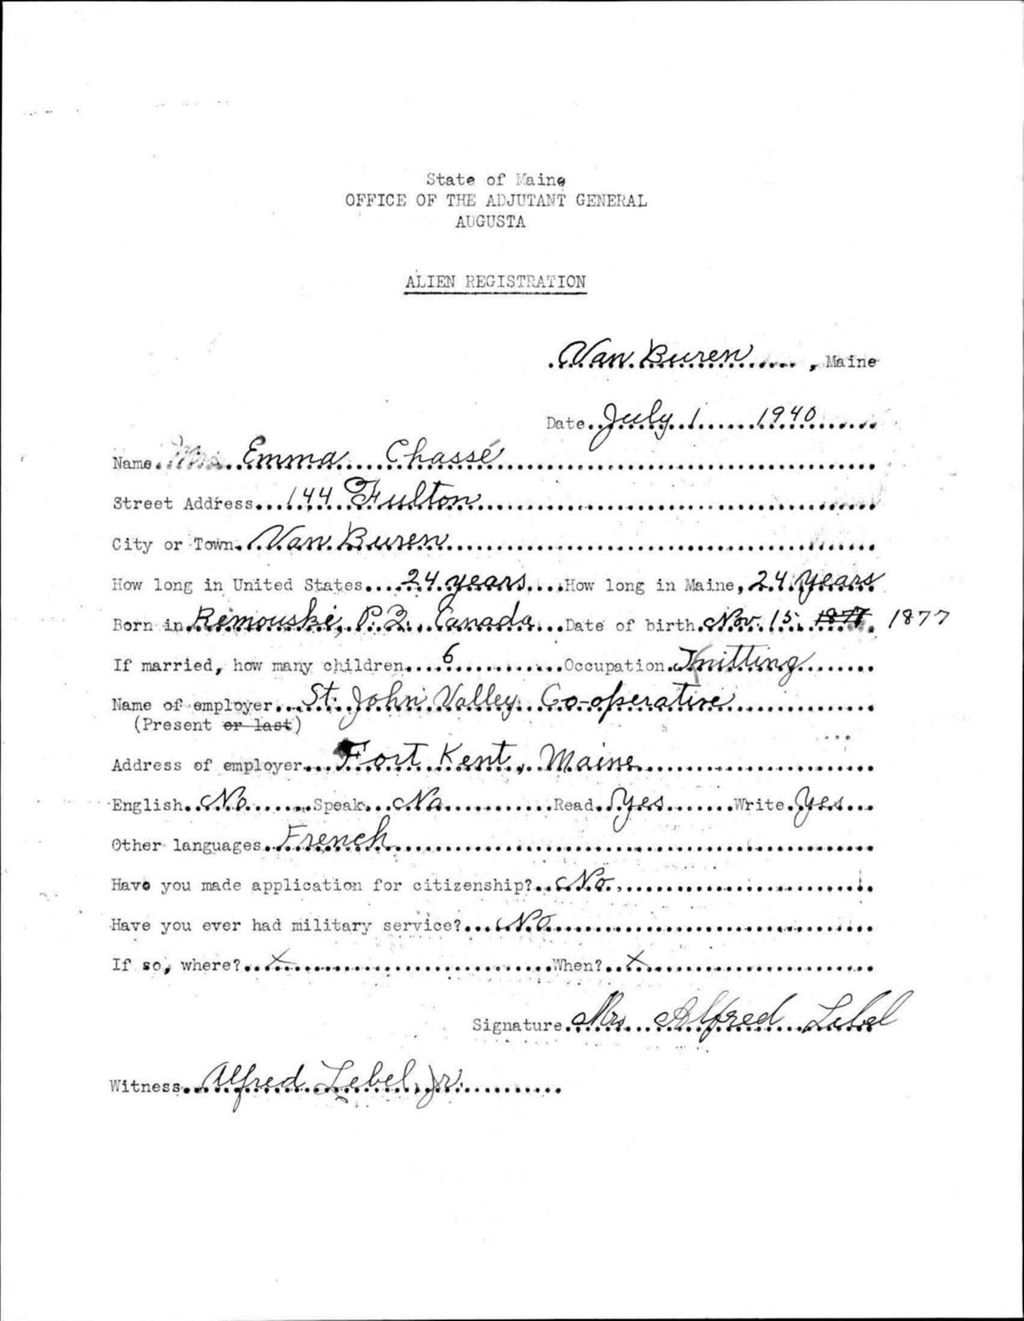 State of Maine
OFFICE OF THE ADJUTANT GENERAL
AUGUSTA
ALIEN REGISTRATION
Van Buren, Maine
Date July 1 1940
Name Mrs. Emma Chassé
Street Address 144 Fulton
City or Town Van Buren
How long in United States 24 years How long in Maine, 24 years
Born in Rimouski, P.Q., Canada Date of birth Nov. 15, 1877 1877
If married, how many children 6 Occupation Knitting
Name of employer St. John Valley Co-operative
(Present or last)
Address of employer Fort Kent, Maine
English No Speak No Read Yes Write Yes
Other languages French
Have you made application for citizenship? No.
Have you ever had military service? No
If so, where? X When? X
Signature Mrs Alfred Lebel
Witness Alfred Lebel, Jr.